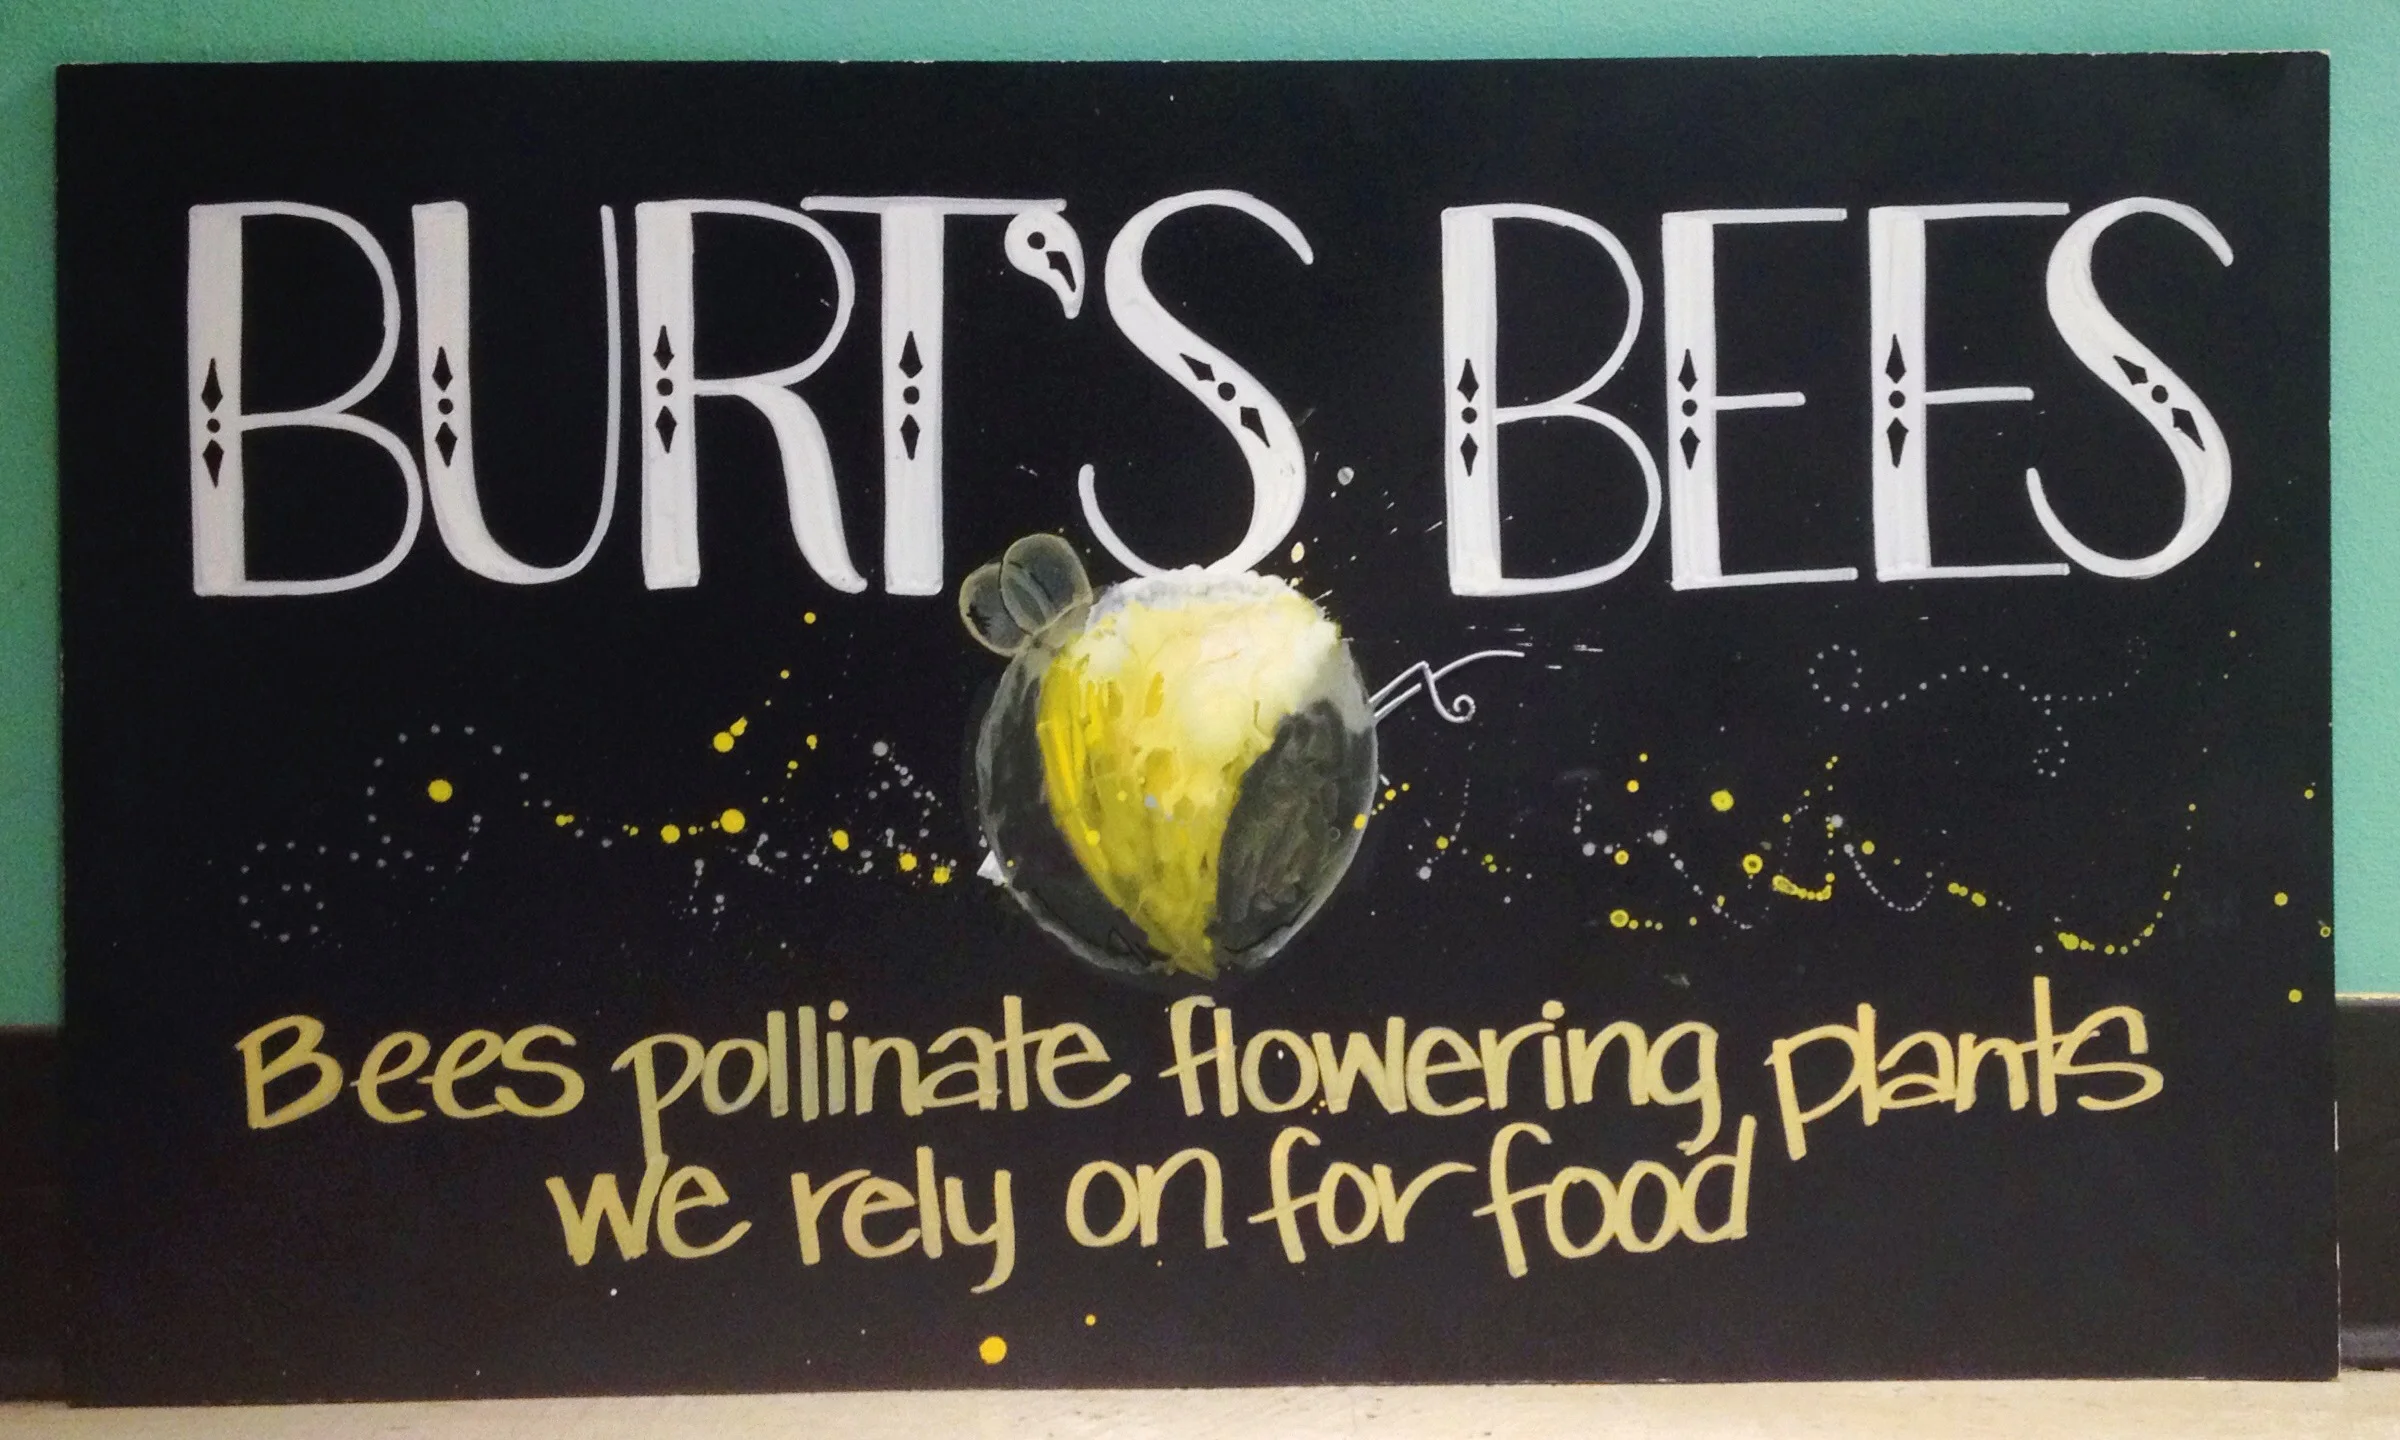 BURT'S BEES
Bees pollinate flowering plants
we rely on for food